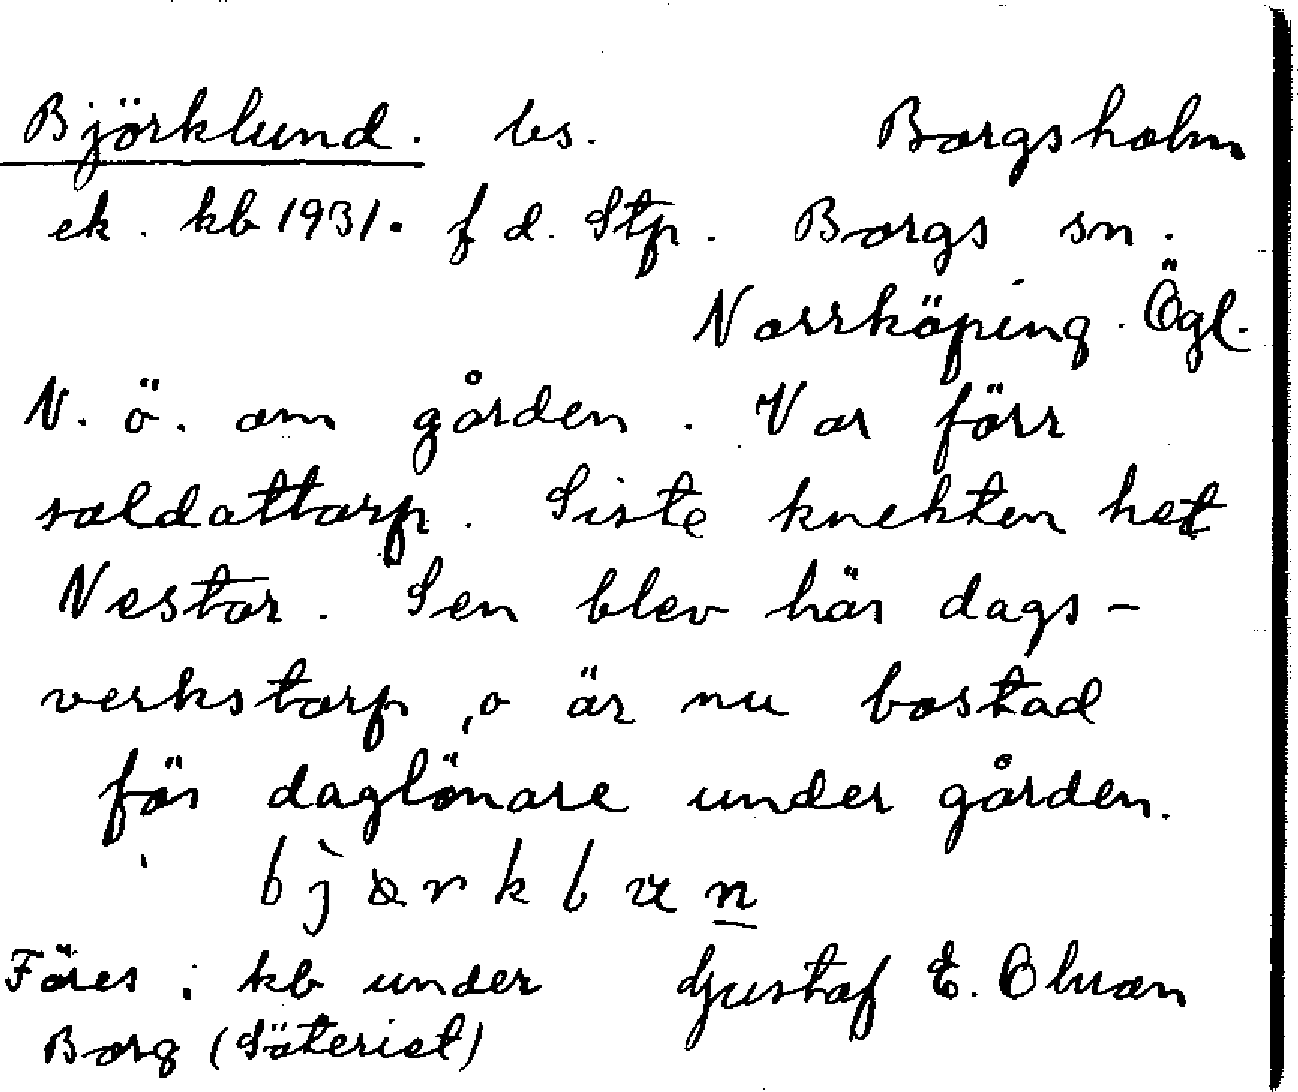 Björklund. bs. Borgsholm
ek. kb 1931. f d. Stp. Borgs sn.
Norrköping. Ögl.
N. ö. om gården. Var förr
soldattorp. Siste knekten het
Nestor. Sen blev här dags-
verkstorp, o är nu bostad
för daglönare under gården.
Föres i kb under Gustaf E. Olwæn
Borg (Säteriet)